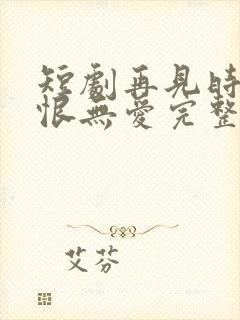 短劇再見時
恨無愛完整
艾芬